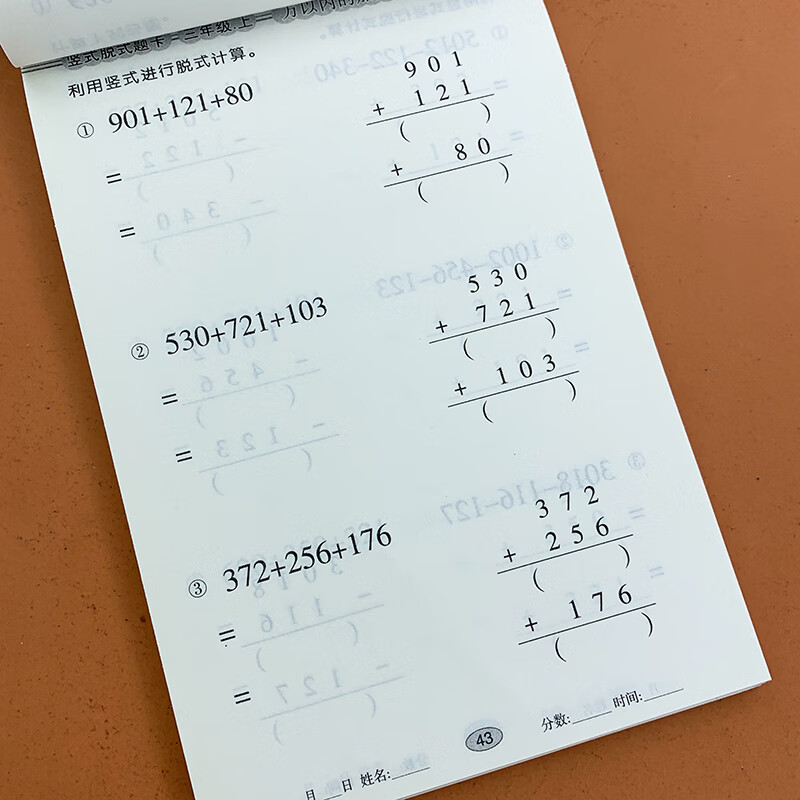 竖式脱式题卡 三年级.上
利用竖式进行脱式计算。
① 901+121+80
=
=
9 0 1
+ 1 2 1
( )
+ 8 0
( )
② 530+721+103
=
=
5 3 0
+ 7 2 1
( )
+ 1 0 3
( )
③ 372+256+176
=
=
3 7 2
+ 2 5 6
( )
+ 1 7 6
( )
月__日 姓名:____ 43 分数:____ 时间:____